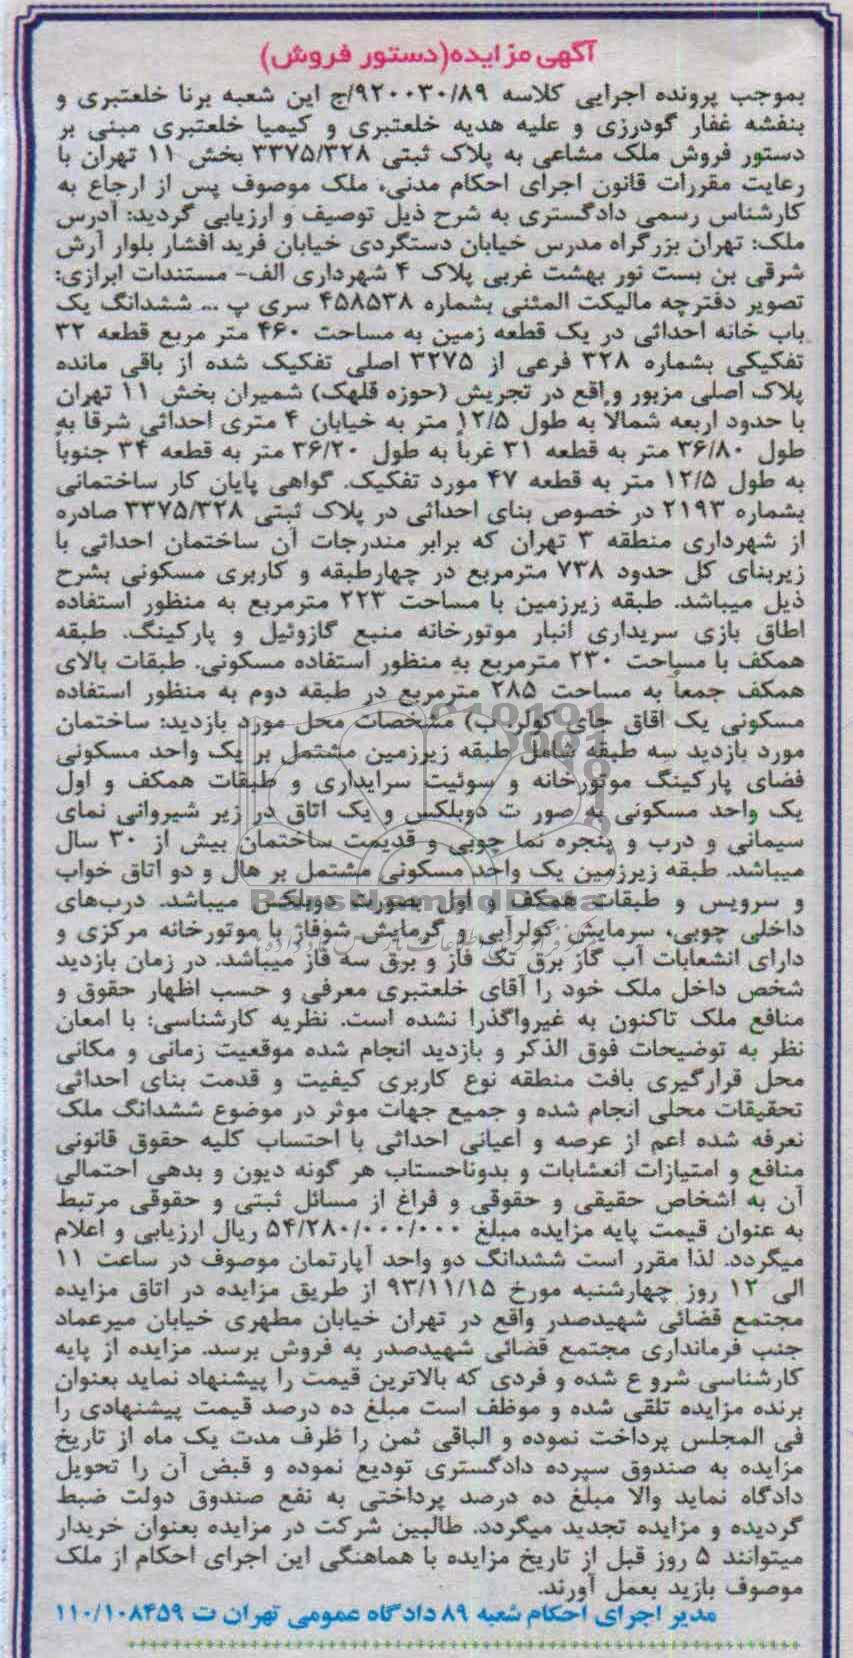 آگهی مزایده(دستور فروش)
بموجب پرونده اجرایی کلاسه ۹۲۰۰۳۰/۸۹/ج این شعبه برنا خلعتبری و
بنفشه غفار گودرزی و علیه هدیه خلعتبری و کیمیا خلعتبری مبنی بر
دستور فروش ملک مشاعی به پلاک ثبتی ۳۳۷۵/۳۲۸ بخش ۱۱ تهران با
رعایت مقررات قانون اجرای احکام مدنی، ملک موصوف پس از ارجاع به
کارشناس رسمی دادگستری به شرح ذیل توصیف و ارزیابی گردید: آدرس
ملک: تهران بزرگراه مدرس خیابان دستگردی خیابان فرید افشار بلوار آرش
شرقی بن بست نور بهشت غربی پلاک ۴ شهرداری الف- مستندات ابرازی:
تصویر دفترچه مالیکت المثنی بشماره ۴۵۸۵۳۸ سری پ ... ششدانگ یک
باب خانه احداثی در یک قطعه زمین به مساحت ۴۶۰ متر مربع قطعه ۳۲
تفکیکی بشماره ۳۲۸ فرعی از ۳۲۷۵ اصلی تفکیک شده از باقی مانده
پلاک اصلی مزبور واقع در تجریش (حوزه قلهک) شمیران بخش ۱۱ تهران
با حدود اربعه شمالاً به طول ۱۲/۵ متر به خیابان ۴ متری احداثی شرقا به
طول ۳۶/۸۰ متر به قطعه ۳۱ غرباً به طول ۳۶/۲۰ متر به قطعه ۳۴ جنوباً
به طول ۱۲/۵ متر به قطعه ۴۷ مورد تفکیک. گواهی پایان کار ساختمانی
بشماره ۲۱۹۳ در خصوص بنای احداثی در پلاک ثبتی ۳۳۷۵/۳۲۸ صادره
از شهرداری منطقه ۳ تهران که برابر مندرجات آن ساختمان احداثی با
زیربنای کل حدود ۷۳۸ مترمربع در چهارطبقه و کاربری مسکونی بشرح
ذیل میباشد. طبقه زیرزمین با مساحت ۲۲۳ مترمربع به منظور استفاده
اطاق بازی سریداری انبار موتورخانه منبع گازوئیل و پارکینگ. طبقه
همکف با مساحت ۲۳۰ مترمربع به منظور استفاده مسکونی. طبقات بالای
همکف جمعاً به مساحت ۲۸۵ مترمربع در طبقه دوم به منظور استفاده
مسکونی یک اقاق جای کولر ب) مشخصات محل مورد بازدید: ساختمان
مورد بازدید سه طبقه شامل طبقه زیرزمین مشتمل بر یک واحد مسکونی
فضای پارکینگ موتورخانه و سوئیت سرایداری و طبقات همکف و اول
یک واحد مسکونی به صور ت دوبلکس و یک اتاق در زیر شیروانی نمای
سیمانی و درب و پنجره نما چوبی و قدیمت ساختمان بیش از ۳۰ سال
میباشد. طبقه زیرزمین یک واحد مسکونی مشتمل بر هال و دو اتاق خواب
و سرویس و طبقات همکف و اول بصورت دوبلکس میباشد. درب‌های
داخلی چوبی، سرمایش کولرآبی و گرمایش شوفاژ با موتورخانه مرکزی و
دارای انشعابات آب گاز برق تک فاز و برق سه فاز میباشد. در زمان بازدید
شخص داخل ملک خود را آقای خلعتبری معرفی و حسب اظهار حقوق و
منافع ملک تاکنون به غیرواگذرا نشده است. نظریه کارشناسی: با امعان
نظر به توضیحات فوق الذکر و بازدید انجام شده موقعیت زمانی و مکانی
محل قرارگیری بافت منطقه نوع کاربری کیفیت و قدمت بنای احداثی
تحقیقات محلی انجام شده و جمیع جهات موثر در موضوع ششدانگ ملک
تعرفه شده اعم از عرصه و اعیانی احداثی با احتساب کلیه حقوق قانونی
منافع و امتیازات انعشابات و بدوناحستاب هر گونه دیون و بدهی احتمالی
آن به اشخاص حقیقی و حقوقی و فراغ از مسائل ثبتی و حقوقی مرتبط
به عنوان قیمت پایه مزایده مبلغ ۵۴/۲۸۰/۰۰۰/۰۰۰ ریال ارزیابی و اعلام
میگردد. لذا مقرر است ششدانگ دو واحد آپارتمان موصوف در ساعت ۱۱
الی ۱۲ روز چهارشنبه مورخ ۹۳/۱۱/۱۵ از طریق مزایده در اتاق مزایده
مجتمع قضائی شهیدصدر واقع در تهران خیابان مطهری خیابان میرعماد
جنب فرمانداری مجتمع قضائی شهیدصدر به فروش برسد. مزایده از پایه
کارشناسی شرو ع شده و فردی که بالاترین قیمت را پیشنهاد نماید بعنوان
برنده مزایده تلقی شده و موظف است مبلغ ده درصد قیمت پیشنهادی را
فی المجلس پرداخت نموده و الباقی ثمن را ظرف مدت یک ماه از تاریخ
مزایده به صندوق سپرده دادگستری تودیع نموده و قبض آن را تحویل
دادگاه نماید والا مبلغ ده درصد پرداختی به نفع صندوق دولت ضبط
گردیده و مزایده تجدید میگردد. طالبین شرکت در مزایده بعنوان خریدار
میتوانند ۵ روز قبل از تاریخ مزایده با هماهنگی این اجرای احکام از ملک
موصوف بازید بعمل آورند.
مدیر اجرای احکام شعبه ۸۹ دادگاه عمومی تهران ت ۱۱۰/۱۰۸۴۵۹
ParsNamadData